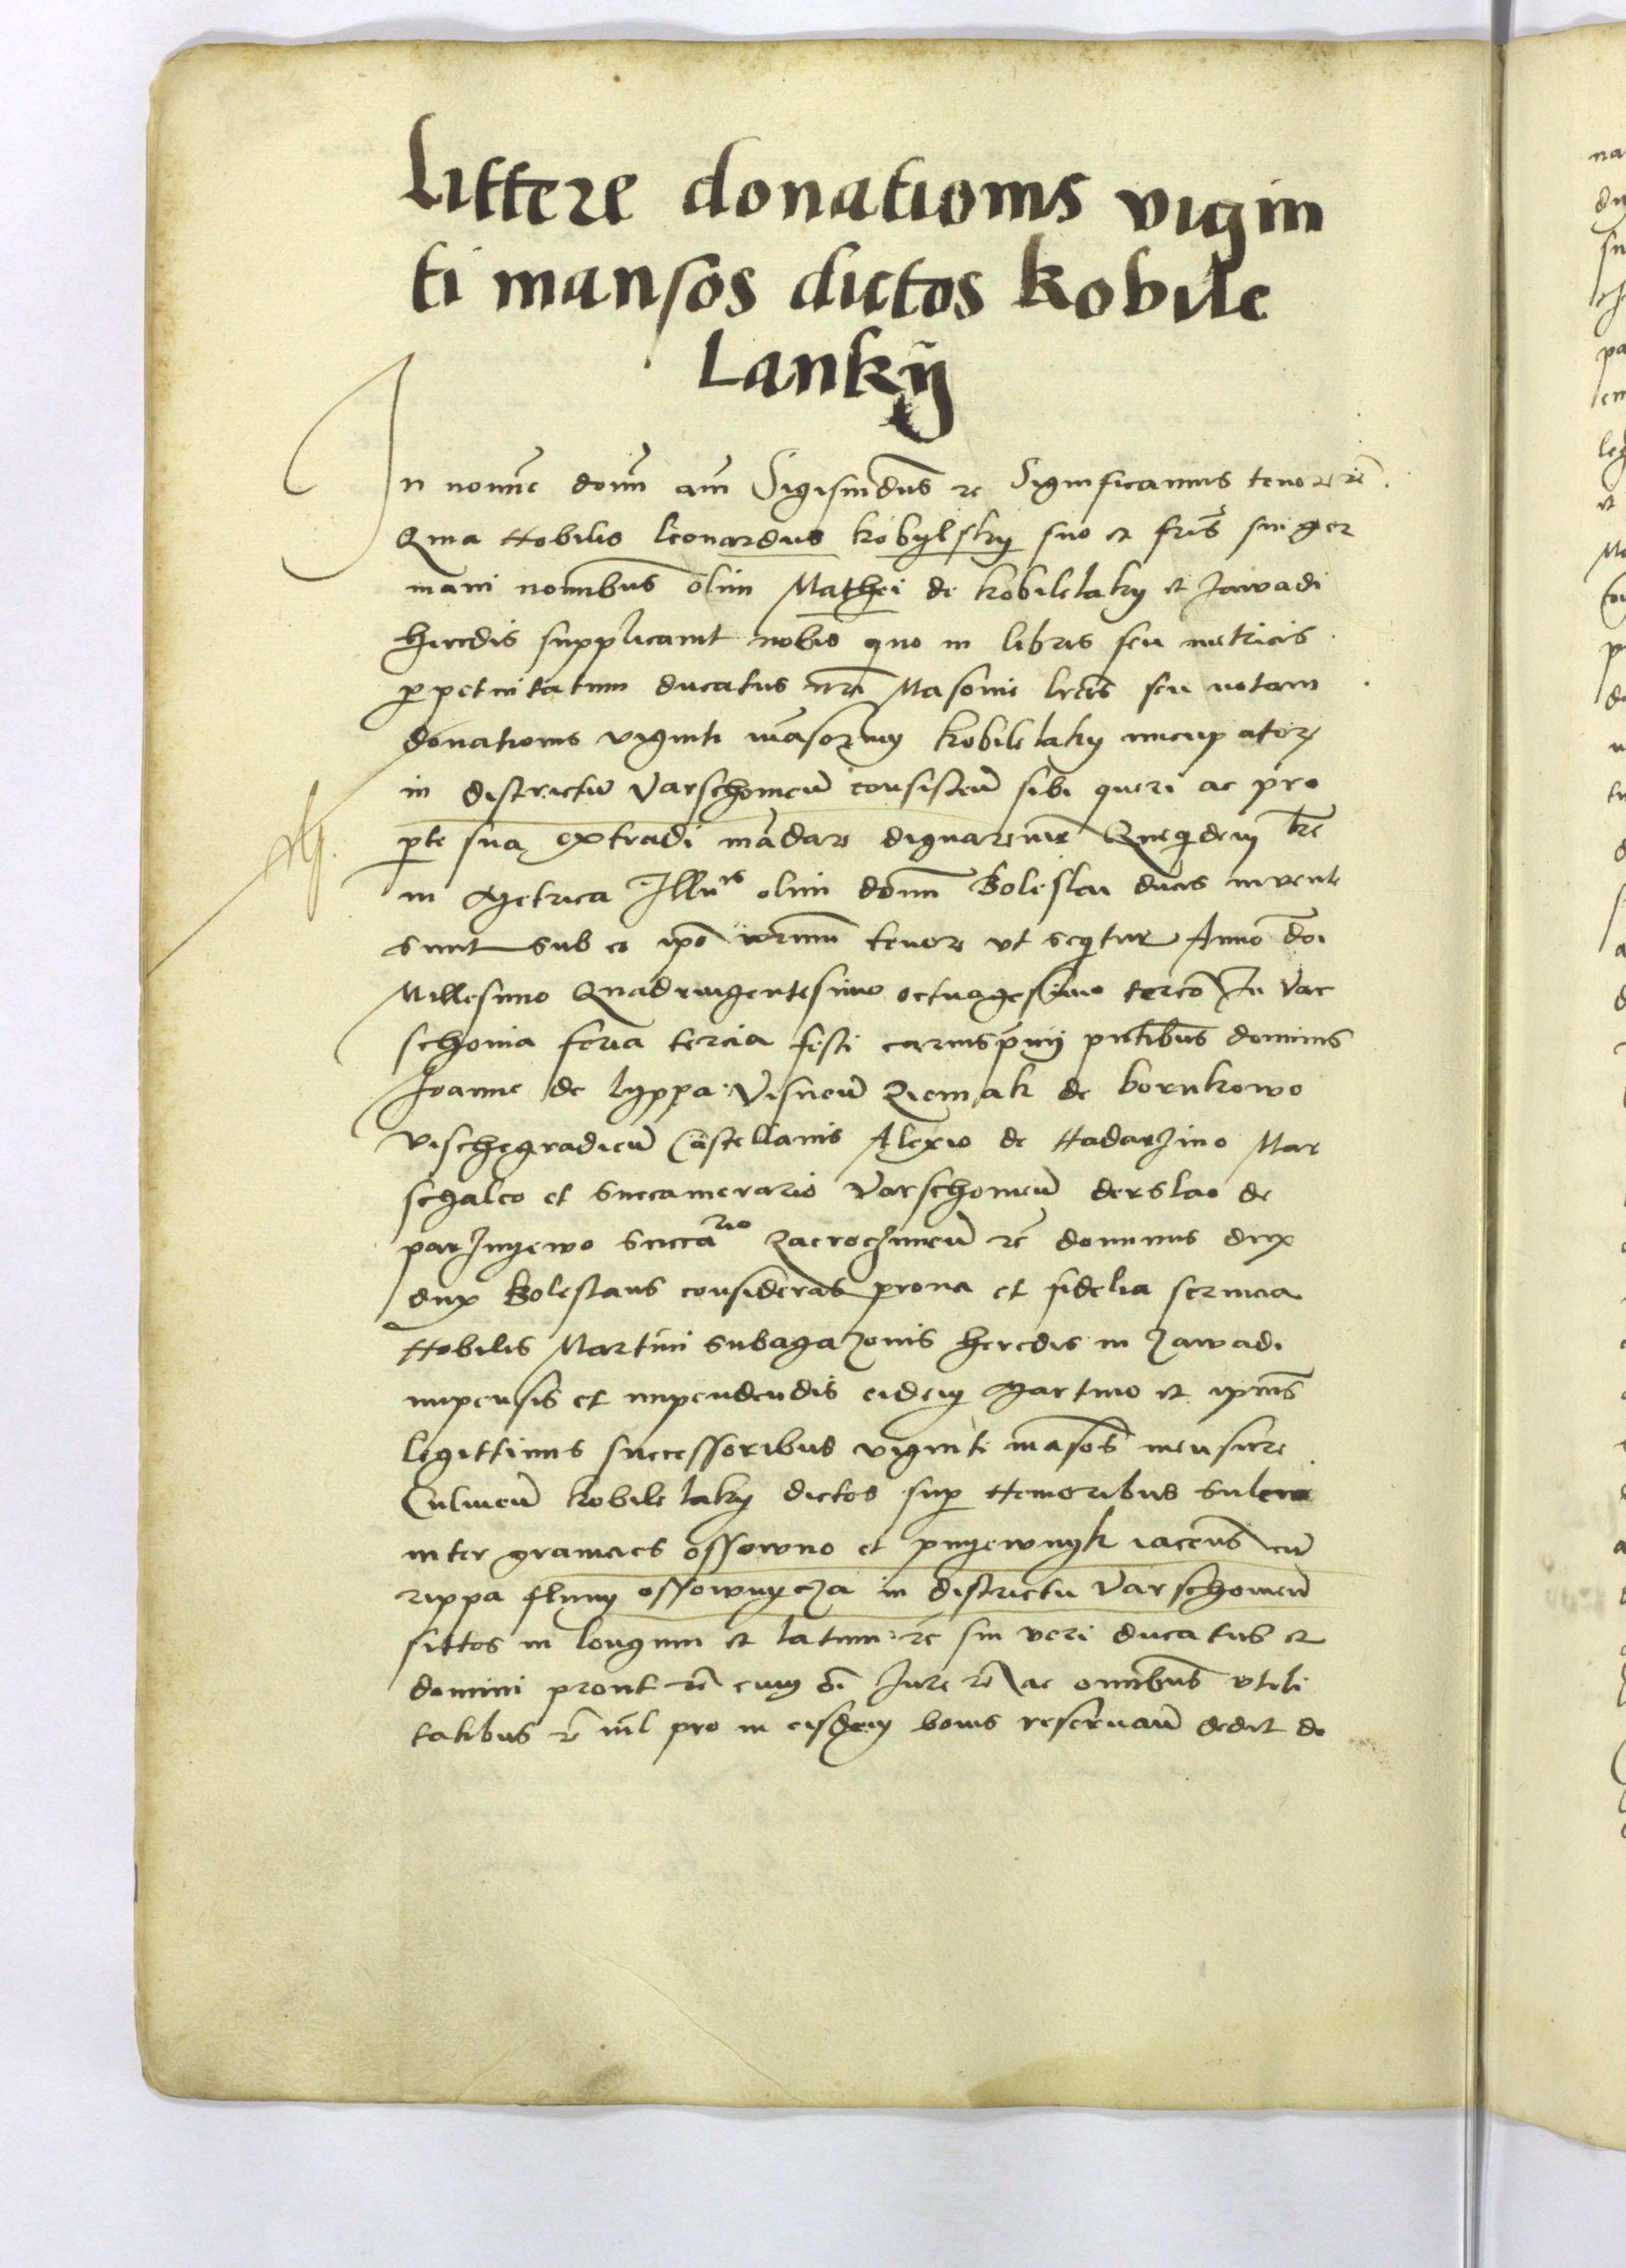 Littere donationis vigin
ti mansos dictos Kobile
Lankÿ
In nomine domini amen Sigismundus etc Significamus tenore etc
Quia Nobilis Leonardus Kobylsky suo et fratris sui ger
mani nominibus olim Mathei de Kobilelaky et Zawadi
heredis supplicavit nobis quo in libris seu metricis
perpetuitatum ducatus nostri Masovie litteras seu notam
donationis viginti mansorum Kobilelaky nuncupatorum
in districtu Varschoviensi consistentium sibi queri ac pro
parte sua extradi mandare dignaremur Quequidem littere
in Metrica Illustris olim domini Boleslai ducis invente
sunt sub eo ipso verborum tenore ut sequitur Anno domini
Millesimo Quadringentesimo octuagesimo tercio In Var
schovia feria tercia festi carnisprivii presentibus dominis
Joanne de Lyppa Visnensi Ziemak de Borukowo
Vischegradiensi Castellanis Alexio de Nadarzino Mar
schalco et Succamerario Varschoviensi Derslao de
parznyewo Succamerario Zacrocimensi etc dominus dux
dux Boleslaus considerans prona et fidelia servicia
Nobilis Martini Subagazonis heredis in Zawadi
impensis et impendendis eidem Martino et ipsius
legittimis successoribus viginti mansos mensure
Culmensis Kobile laky dictos super Nemoribus
inter granicies Ossowno et pnyewnyk iacentes cum
rippa fluvy Ossownycza in districtu Varschoviensi
sittos in longum et latum etc sui veri ducatus et
domini prout etc cum omni Jure etc ac omnibus utili
tatibus etc nil pro in eisdem bonis reservans dedit do